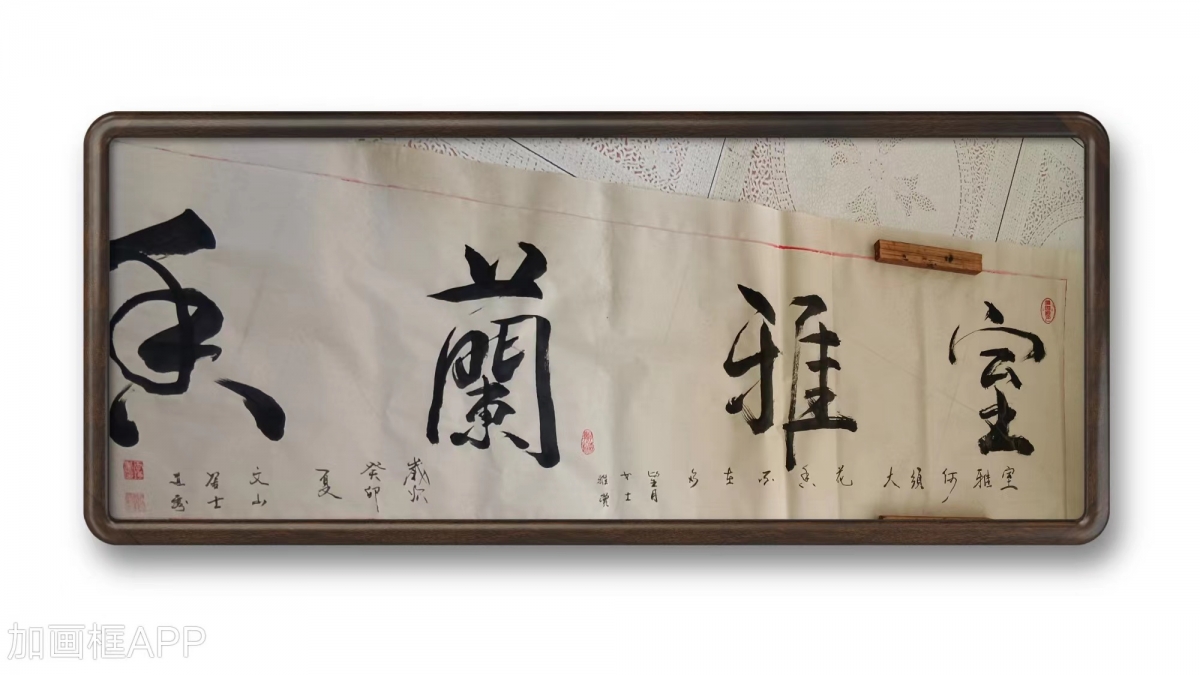 室雅蘭香
室雅何須大花香不在多
女士雅賞
歲次癸卯夏
文山
加画框APP